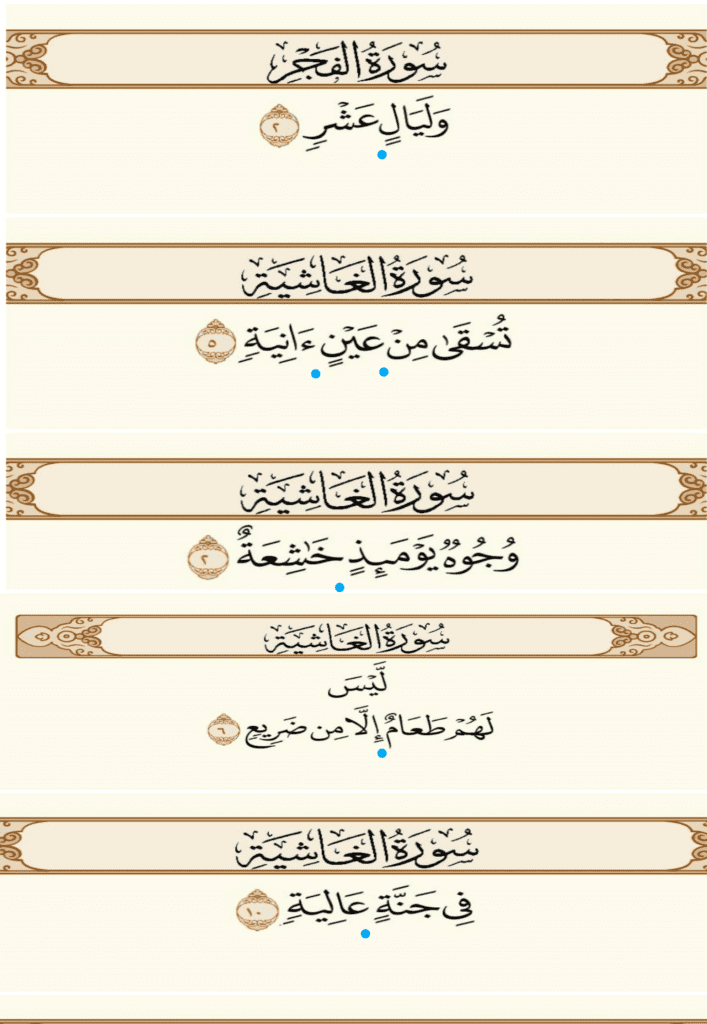 سُورَةُ الفَجْرِ
وَلَيَالٍ عَشْرٍ ٢
سُورَةُ الغَاشِيَةِ
تُسْقَىٰ مِنْ عَيْنٍ ءَانِيَةٍ ٥
سُورَةُ الغَاشِيَةِ
وُجُوهٌ يَوْمَئِذٍ خَٰشِعَةٌ ٢
سُورَةُ الغَاشِيَةِ
لَّيْسَ
لَهُمْ طَعَامٌ إِلَّا مِن ضَرِيعٍ ٦
سُورَةُ الغَاشِيَةِ
فِى جَنَّةٍ عَالِيَةٍ ١٠